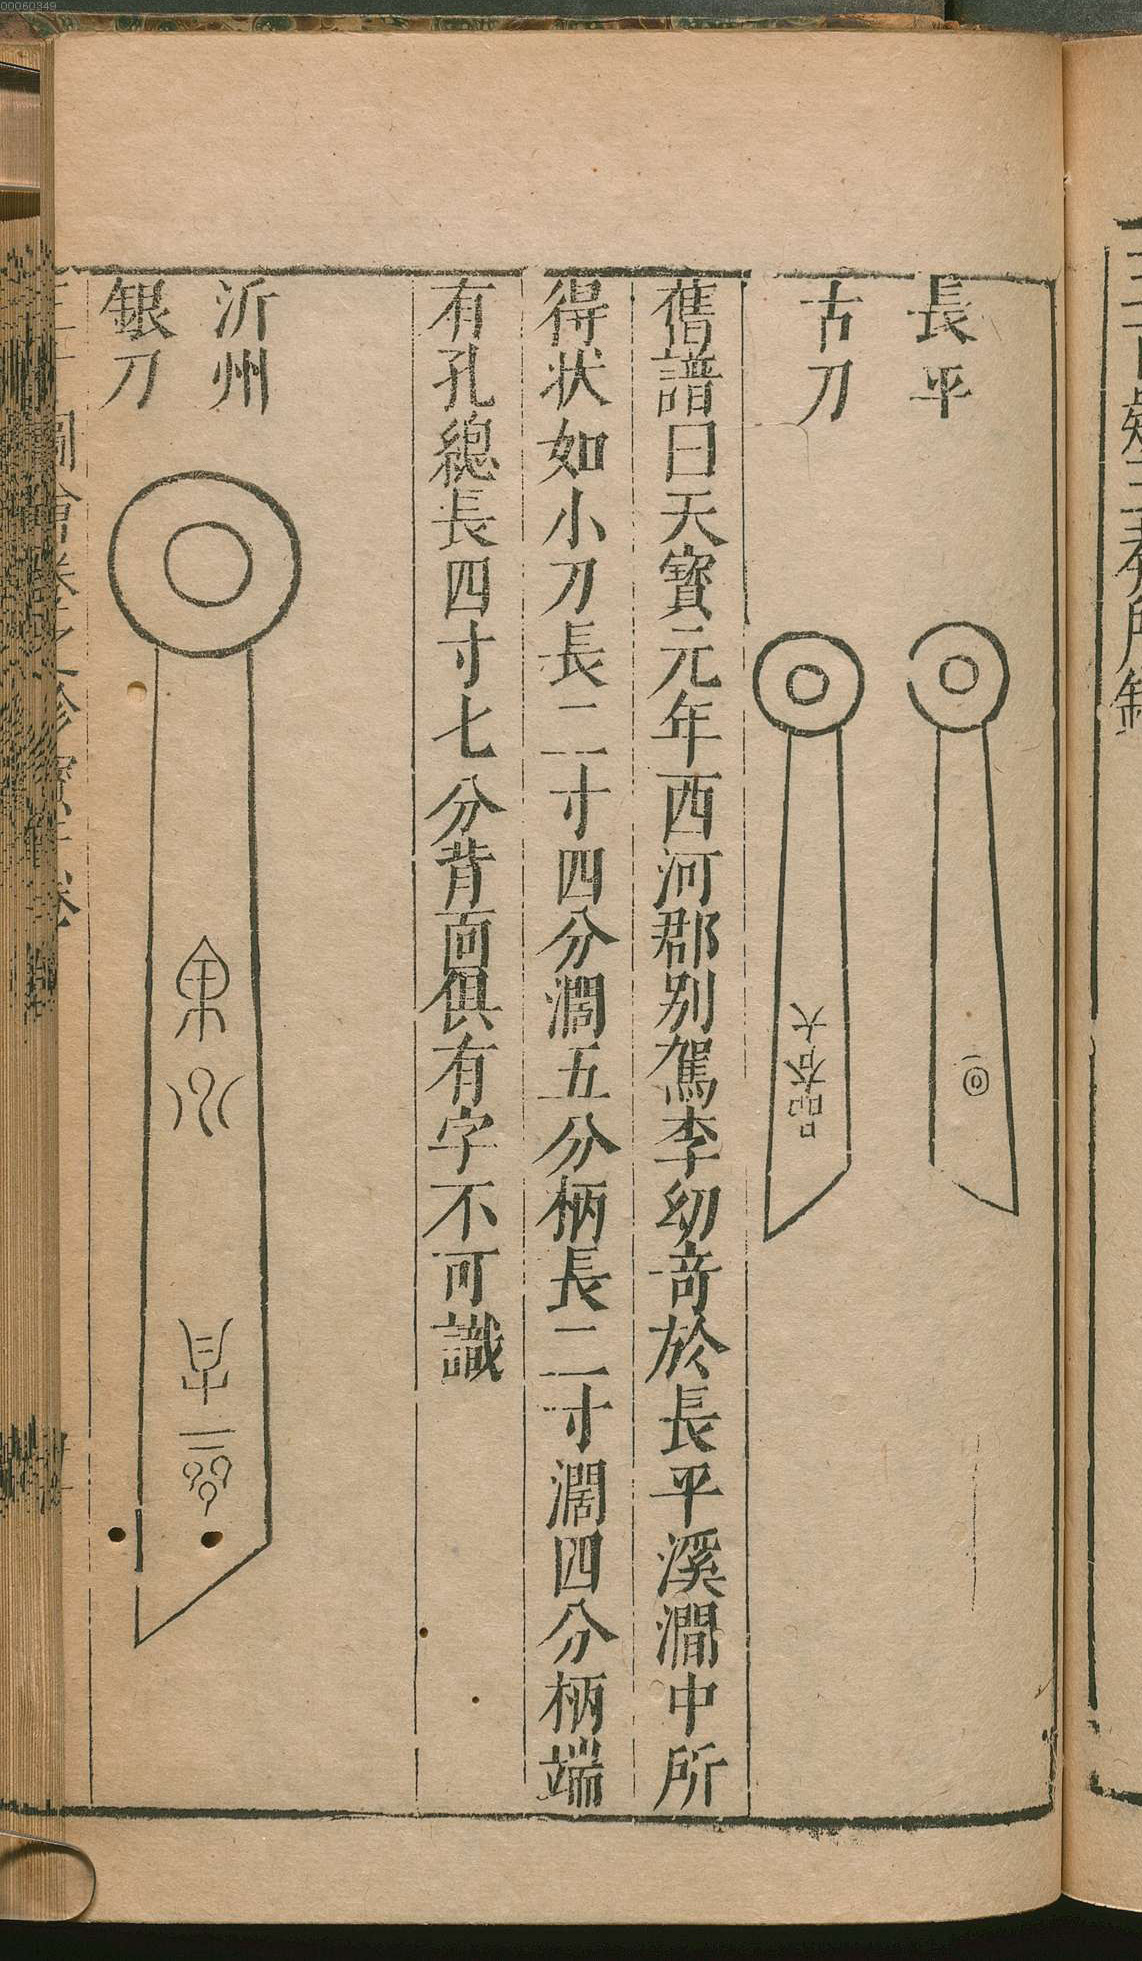 長平
古刀
舊譜曰天寳元年西河郡别駕李幼竒於長平溪澗中所
得状如小刀長二寸四分濶五分柄長二寸濶四分柄端
有孔總長四寸七分背面俱有字不可識
沂州
銀刀
00060349